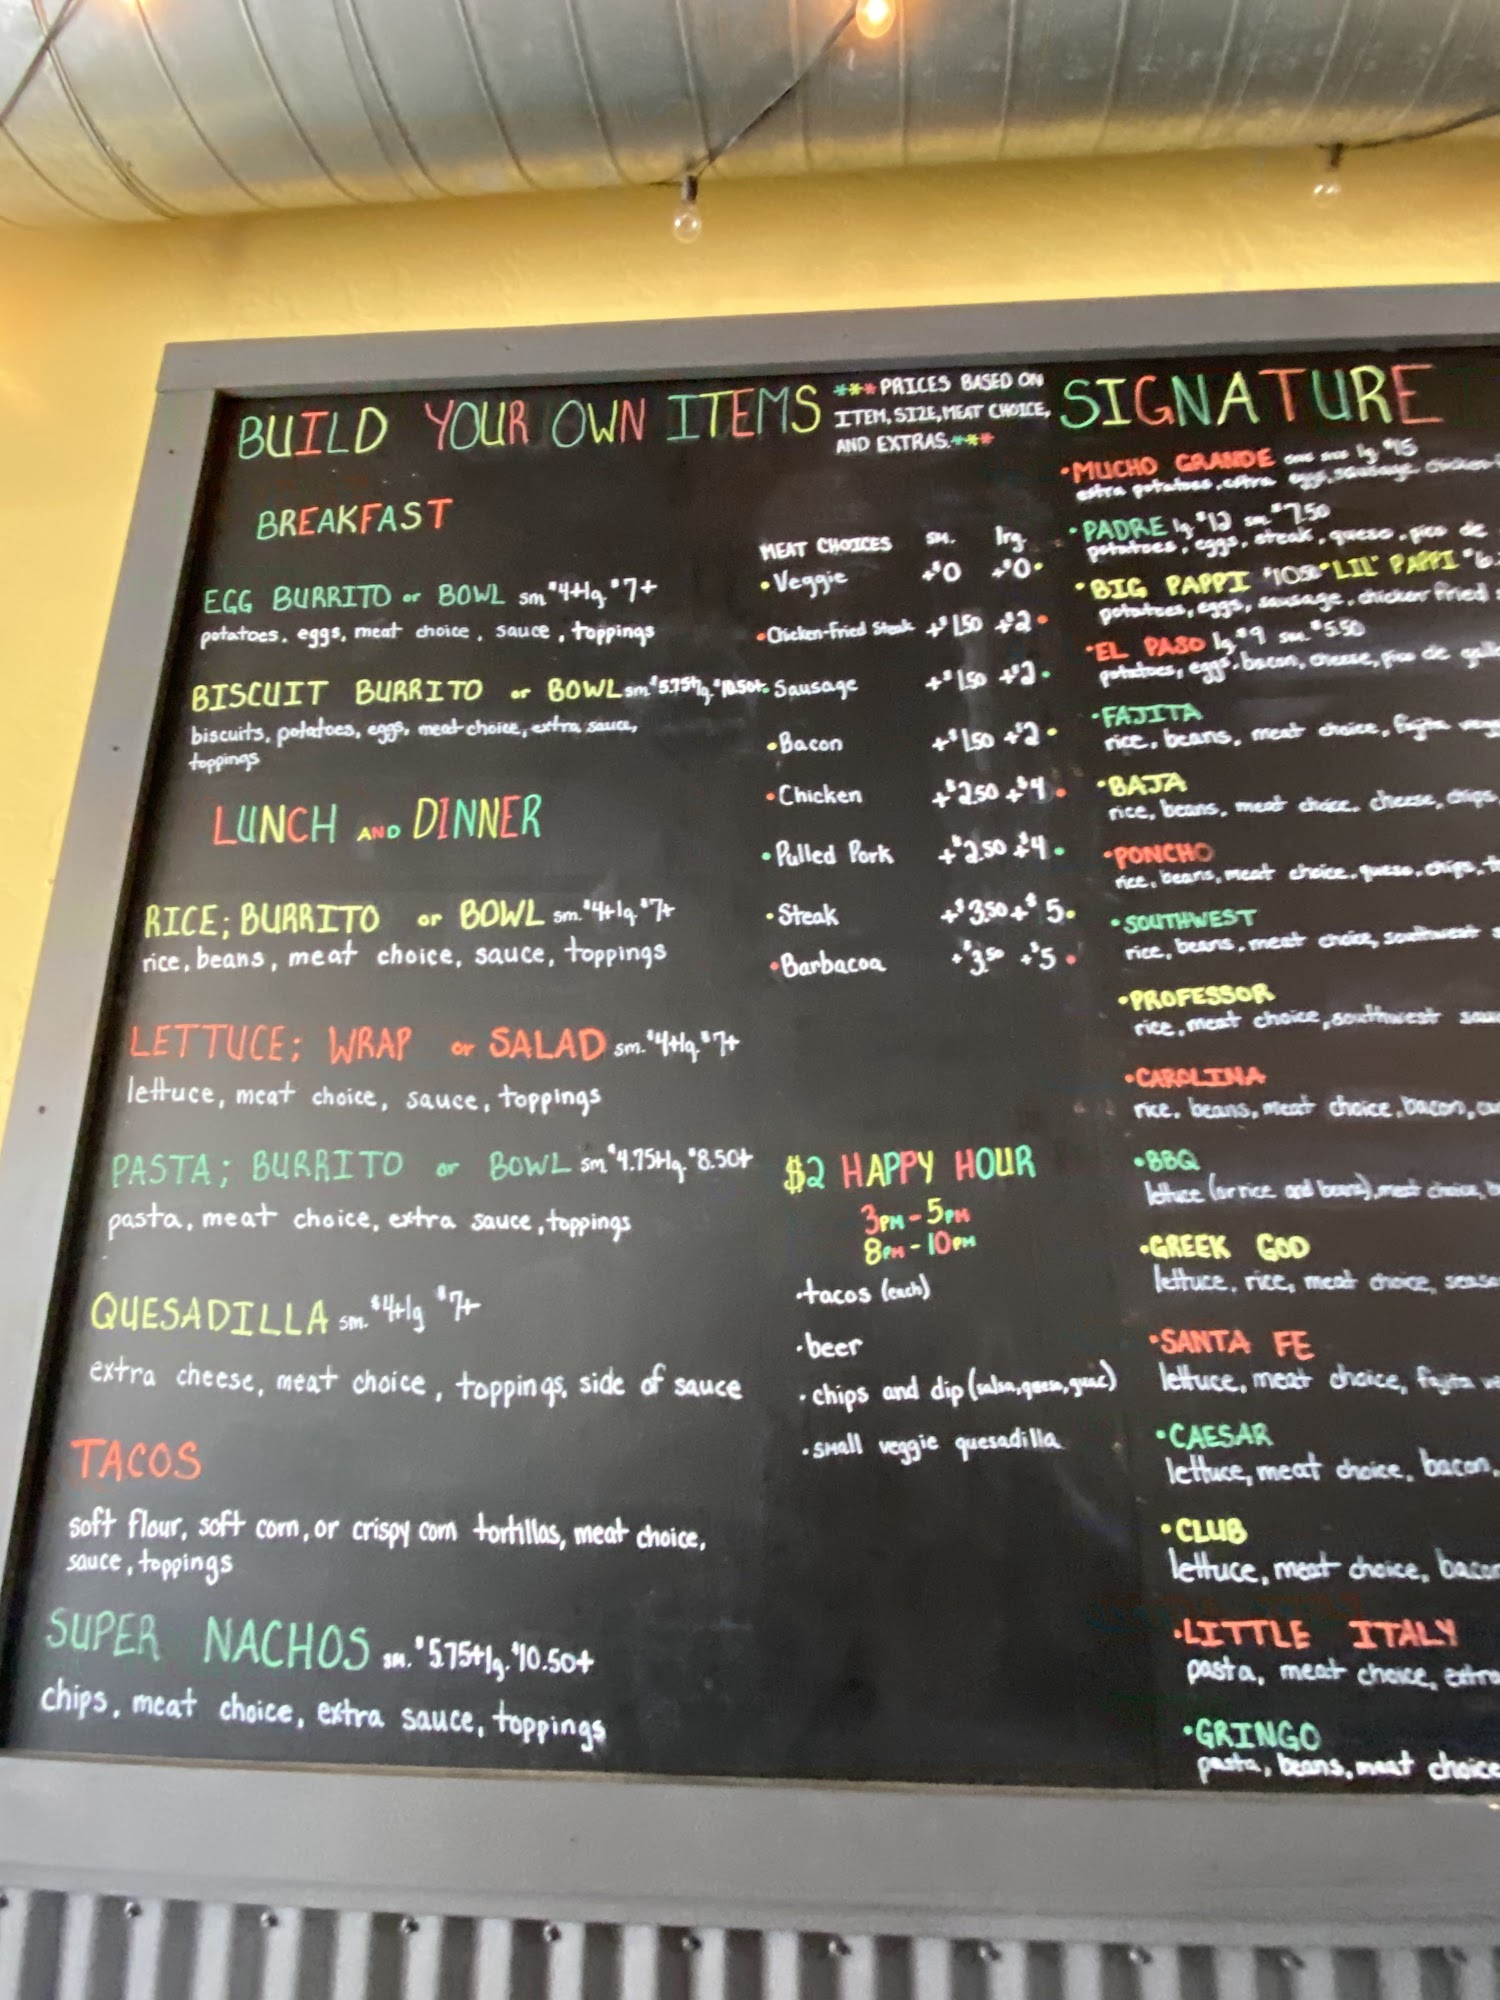 BUILD YOUR OWN ITEMS
***PRICES BASED ON
ITEM, SIZE, MEAT CHOICE,
AND EXTRAS.***
BREAKFAST
EGG BURRITO or BOWL sm $4+lg. $7+
potatoes, eggs, meat choice, sauce, toppings
BISCUIT BURRITO or BOWL sm. $5.75+lg. $10.50+
biscuits, potatoes, eggs, meat choice, extra sauce,
toppings
LUNCH AND DINNER
RICE; BURRITO or BOWL sm. $4+lg. $7+
rice, beans, meat choice, sauce, toppings
LETTUCE; WRAP or SALAD sm. $4+lg. $7+
lettuce, meat choice, sauce, toppings
PASTA; BURRITO or BOWL sm $4.75+lg. $8.50+
pasta, meat choice, extra sauce, toppings
QUESADILLA sm. $4+lg $7+
extra cheese, meat choice, toppings, side of sauce
TACOS
soft flour, soft corn, or crispy corn tortillas, meat choice,
sauce, toppings
SUPER NACHOS sm. $5.75+lg. $10.50+
chips, meat choice, extra sauce, toppings
MEAT CHOICES sm. lrg.
•Veggie +$0 +$0•
•Chicken-Fried Steak +$1.50 +$2•
•Sausage +$1.50 +$2•
•Bacon +$1.50 +$2•
•Chicken +$2.50 +$4•
•Pulled Pork +$2.50 +$4•
•Steak +$3.50 +$5•
•Barbacoa +$3.50 +$5•
$2 HAPPY HOUR
3PM-5PM
8PM-10PM
•tacos (each)
•beer
•chips and dip (salsa, queso, guac)
•small veggie quesadilla
SIGNATURE
•MUCHO GRANDE lg $15
extra potatoes, extra eggs, sausage, chicken-
•PADRE lg $12 sm $7.50
potatoes, eggs, steak, queso, pico de
•BIG PAPPI $10.50 •LIL' PAPPI
potatoes, eggs, sausage, chicken fried
•EL PASO lg $9 sm. $5.50
potatoes, eggs, bacon, cheese, pico de
•FAJITA
rice, beans, meat choice, fajita
•BAJA
rice, beans, meat choice, cheese, chips,
•PONCHO
rice, beans, meat choice, queso, chips,
•SOUTHWEST
rice, beans, meat choice, southwest
•PROFESSOR
rice, meat choice, southwest
•CAROLINA
rice, beans, meat choice, bacon,
•BBQ
lettuce (or rice and beans), meat choice,
•GREEK GOD
lettuce, rice, meat choice,
•SANTA FE
lettuce, meat choice, fajita
•CAESAR
lettuce, meat choice, bacon,
•CLUB
lettuce, meat choice, bacon
•LITTLE ITALY
pasta, meat choice, extra
•GRINGO
pasta, beans, meat choice